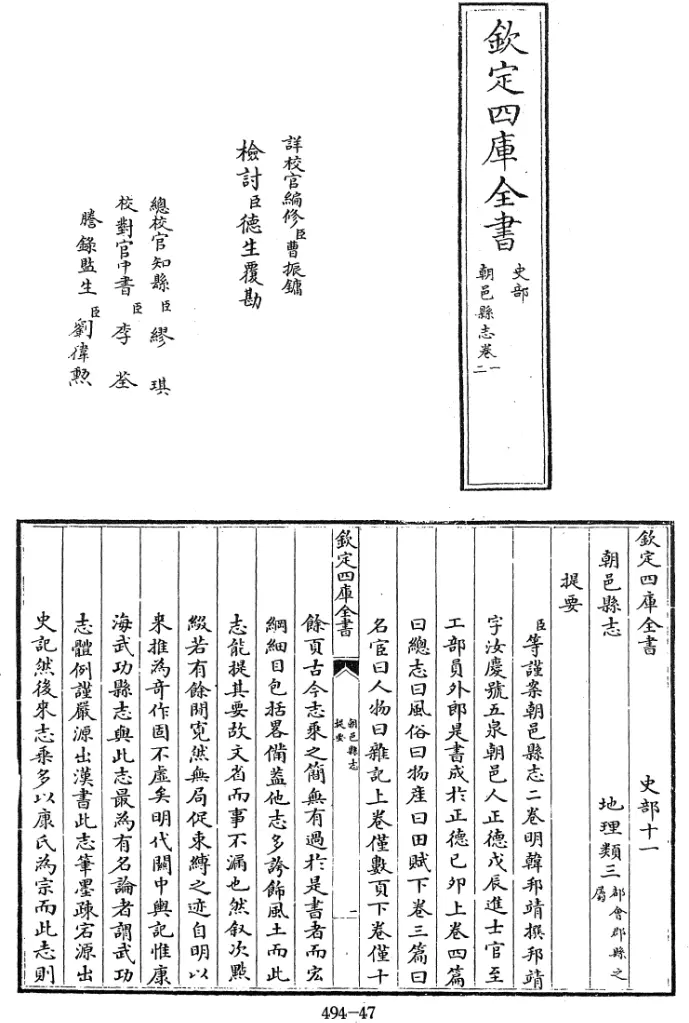 欽定四庫全書
史部
朝邑縣志卷一
二
詳校官編修臣曹振鏞
檢討臣德生覆勘
總校官知縣臣繆琪
校對官中書臣李荃
謄錄監生臣劉徫勲
欽定四庫全書 史部十一
朝邑縣志 地理類三都會郡縣之
屬
提要
臣等謹案朝邑縣志二卷明韓邦靖撰邦靖
字汝慶號五泉朝邑人正德戊辰進士官至
工部員外郎是書成於正德己卯上卷四篇
曰總志曰風俗曰物産曰田賦下卷三篇曰
名宦曰人物曰雜記上卷僅數頁下卷僅十
欽定四庫全書
朝邑縣志
提要
二
餘頁古今志乘之簡無有過於是書者而宏
綱細目包括畧備蓋他志多誇飾風土而此
志能提其要故文省而事不漏也然叙次點
綴若有餘閒寛然無局促束縛之迹自明以
來推為竒作固不虛矣明代關中輿記惟康
海武功縣志與此志最為有名論者謂武功
志體例謹嚴源出漢書此志筆墨疎宕源出
史記然後來志乘多以康氏為宗而此志則
494-47